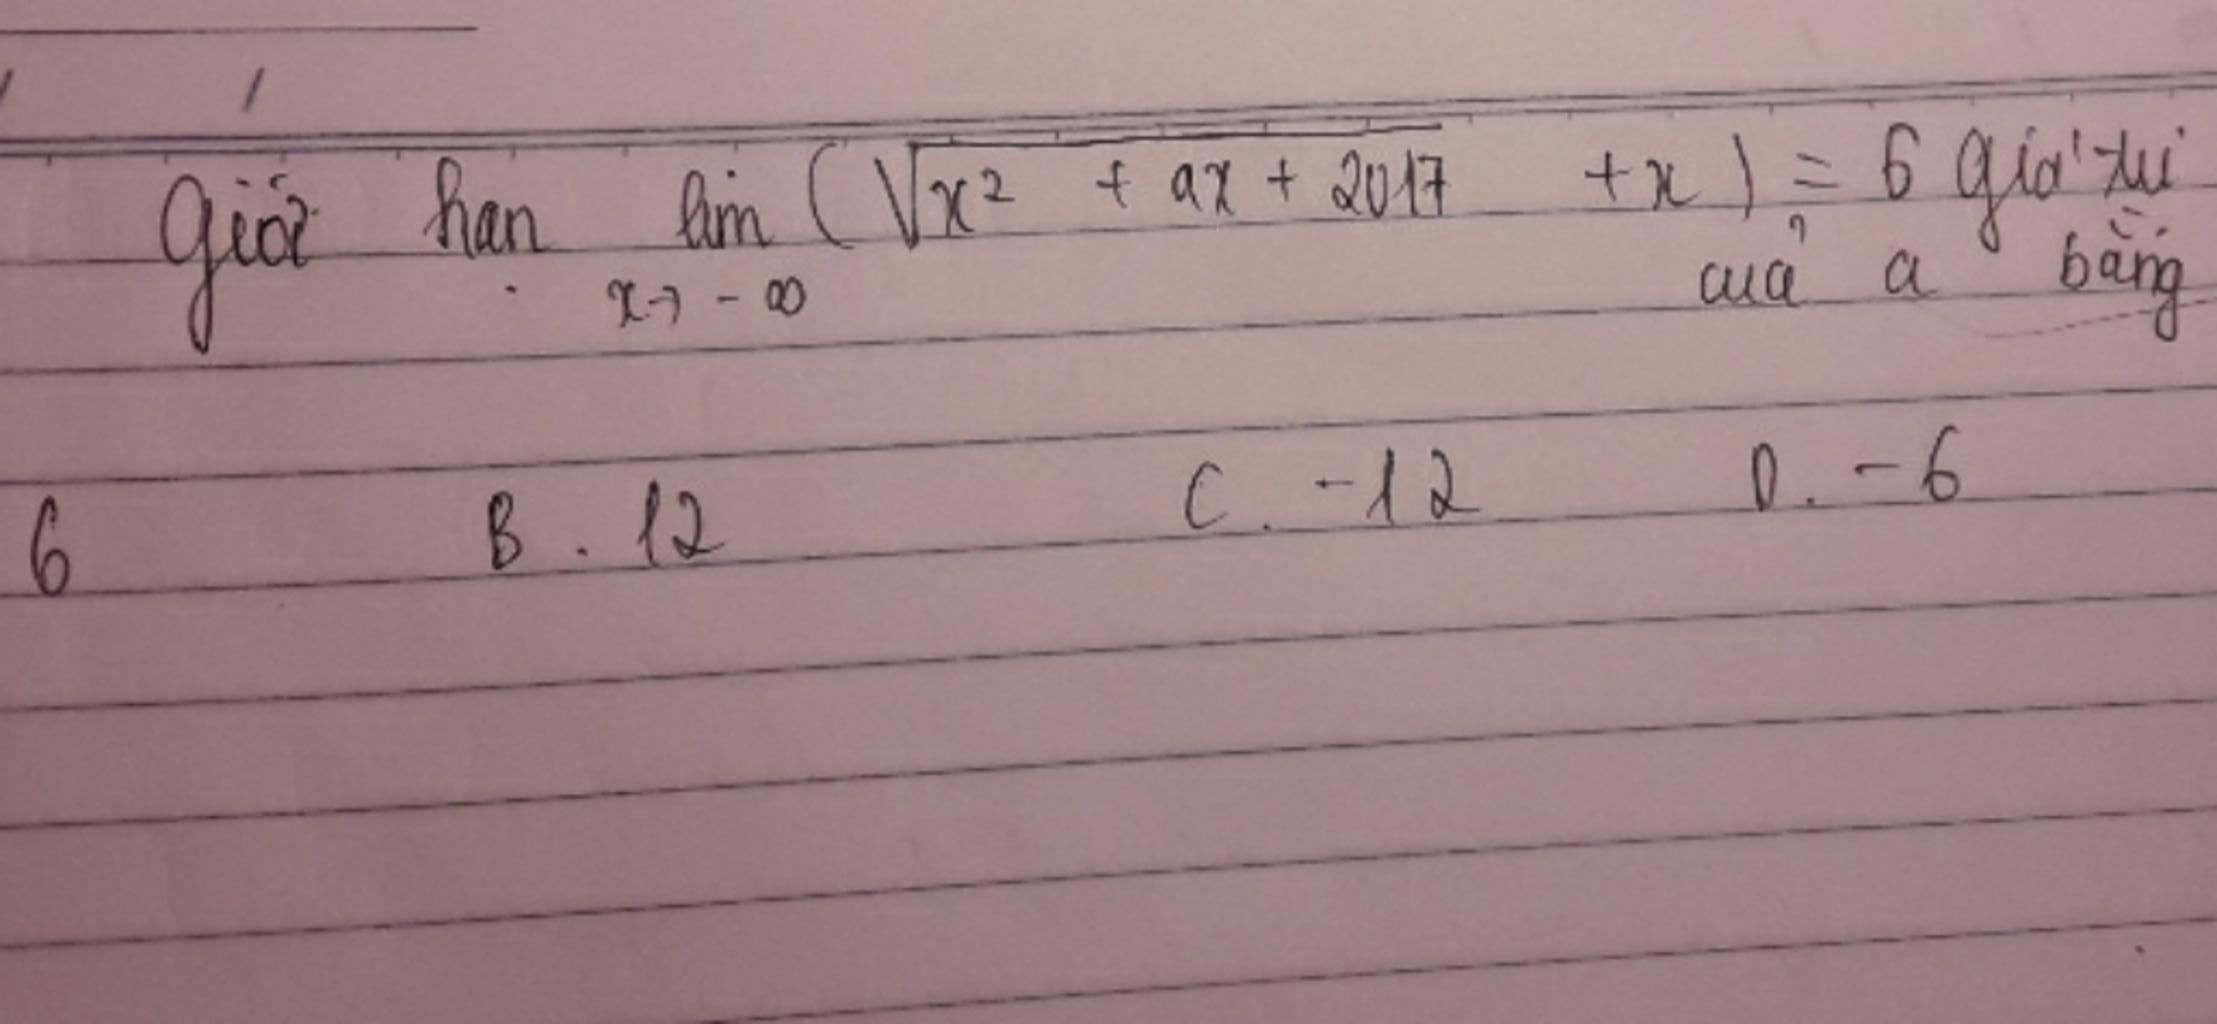 Giới hạn lim (√x² + ax + 2017 + x) = 6 giá trị
x→ -∞ của a bằng
6 B. 12 C. -12 D. -6